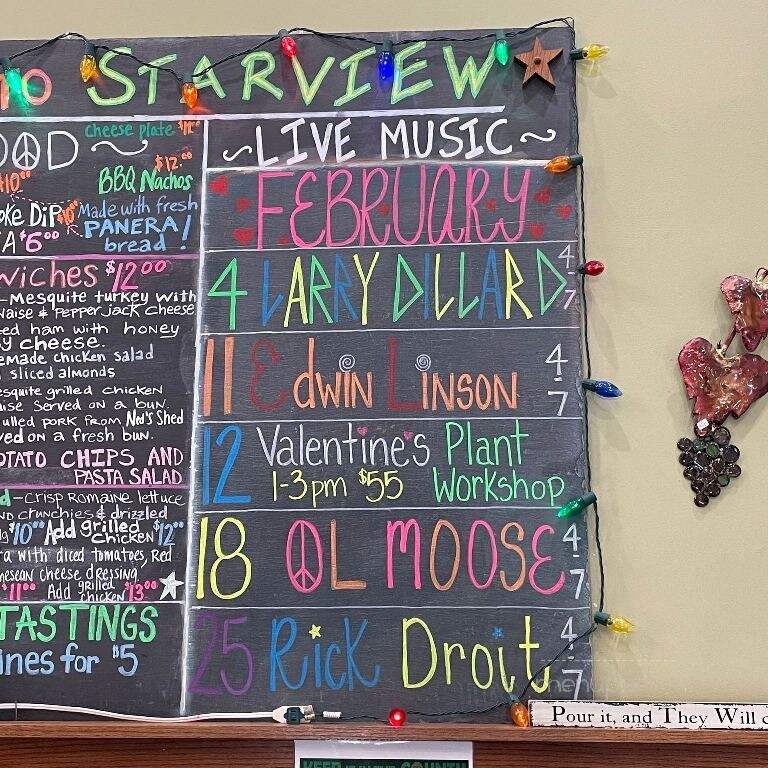 STARVIEW
cheese plate $11.00
$12.00
BBQ Nachos
$10.00
Made with fresh
PANERA
bread!
A $6.00
WICHES $12.00
-Mesquite turkey with
& Pepper jack cheese
ham with honey
cheese.
chicken salad
sliced almonds
grilled chicken
served on a bun.
pork from Ned's Shed
on a fresh bun.
CHIPS AND
PASTA SALAD
-Crisp romaine lettuce
crunchies & drizzled
$10.00 Add grilled chicken $12.00
with diced tomatoes, Red
cheese dressing
$11.00 Add grilled chicken $13.00
TASTINGS
for $5
~LIVE MUSIC~
FEBRUARY
4 LARRY DILLARD 4-7
11 Edwin Linson 4-7
12 Valentine's Plant
1-3pm $55 Workshop
18 OL MOOSE 4-7
25 Rick Droit 4-7
Pour it, and They Will